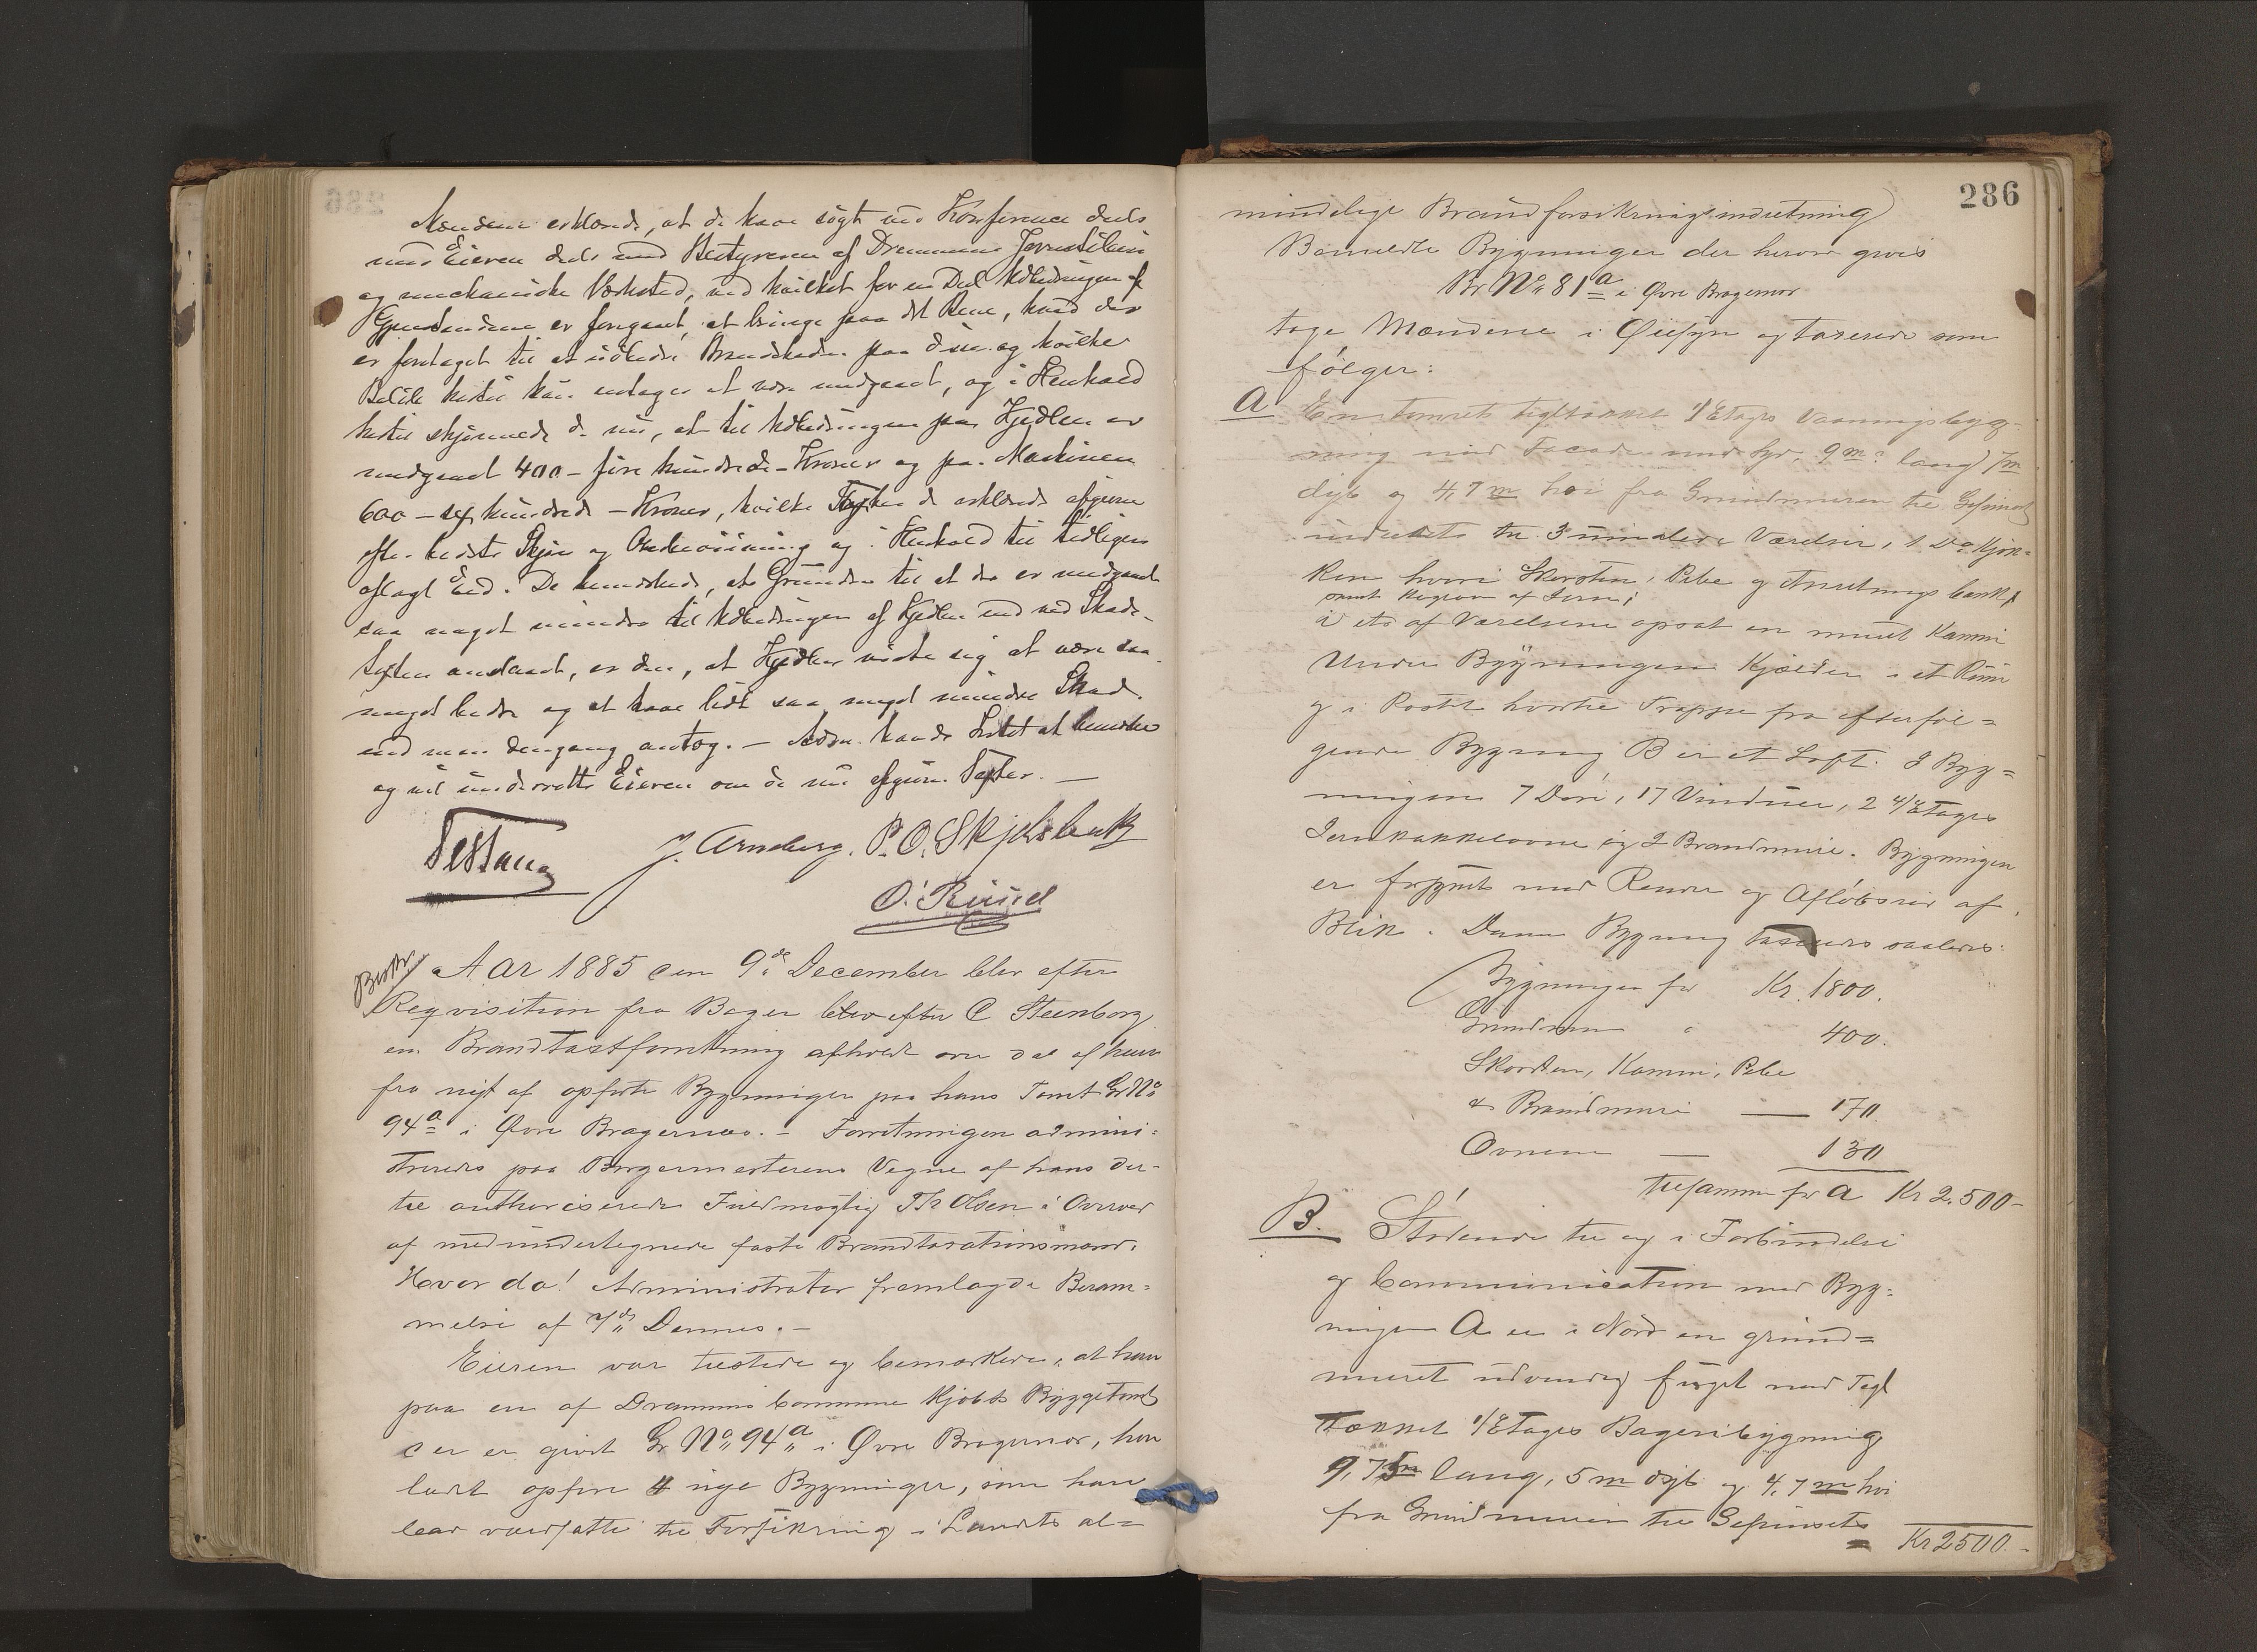 Mændene erklærede, at de have søgt ved Konference deels
med Eieren dels med Bestyreren af Drammens Jernstøberi
og mechaniske Værksted, ved hvilket for en Del Udbedringen af
Gjenstandene er foregaaet, at bringe paa det Rene, hvad der
er foretaget til at udbedre Brandskaden paa disse og hvilke
Beløb hertil kan antages at være medgaaet, og i Henhold
hertil skjønnede de nu, at til Udbedringen paa Kjedlen er
medgaaet 400 – fire hundrede – Kroner og paa Maskinen
600 – sex hundrede – Kroner, hvilke Taxter de erklærede afgivne
efter bedste Skjøn og Overbevisning og i Henhold til tidligere
aflagt Eed. De bemærkede, at Grunden til at der er medgaaet
saa meget mindre til Udbedringen af Kjedlen end ved Skade-
taxten anslaaet, er den, at Kjedlen viste sig at være saa
meget bedre og at have lidt saa meget mindre Skade
end man dengang antog. – Adm. havde Intet at bemærke
og vil underrette Eieren om de nu afgivne Taxter. –
J. Arneberg. P. O. Skjelsbæk
O. Ruud
Aar 1885 den 9de December blev efter
Reqvisition fra Bager blev efter C Steenborg
en Brandtaxtforretning afholdt over de af ham
fra nyt af opførte Bygninger paa hans Tomt Gr No
94a i Øvre Bragernæs. – Forretningen admini=
streredes paa Borgermesterens Vegne af hans der-
til authoriserede Fuldmægtig Th Olsen i Overvær
af medundertegnede faste Brandtaxationsmænd.
Hvorda! Administrator fremlagde Beram=
melse af 7de Dennes. –
Eieren var tilstede og bemærkede, at han
paa en af Drammens Commune kjøbt Byggetomt
der er givet Gr No 94a i Øvre Bragernæs, har
ladet opføre 4 nye Bygninger, som han
lader værdsætte til Forsikring i Landets al=
286
mindelige Brandforsikringsindretning
Bemeldte Bygninger der herom gives
Br No 81a i Øvre Bragernæs
toge Mændene i Øiesyn og taxerede som
følger:
A En tømret teglhænget 1 Etages Vaaningsbyg-
ning med Facade mod Syd, 9 m lang 7 m
dyb og 4,7 m høi fra Grundmuren til Gesimset
indredet til 3 malede Værelser, 1 Do Kjøk=
ken hvori Skorsten, Pibe og Anretningsbænk,
samt Kogeovn af Jern;
i et af Værelserne opsat en muret Kamin
Under Bygningen Kjælder i et Rum
og i Røstet hvortil Trappe fra efterføl=
gende Bygning B er et Loft. I Byg=
ningen 7 Døre, 17 Vinduer, 2 4/Etages
Jernkakkelovne og 2 Brandmure. Bygningen
er forsynet med Render og Afløbsrør af
Blik. Denne Bygning taxeredes saaledes:
Bygningen for Kr. 1800.
Grundmuren " 400.
Skorsten, Kamin, Pibe
& Brandmure — 170
Ovnene — 130
tilsammen for A Kr 2.500 –
B. Stødende til og i Forbindelse
og Communication med Byg=
ningen A er i Nord en grund=
muret udvendig fuget med Tegl
tækket 1/Etages Bageribygning
9,75m lang, 5 m dyb og 4,7 m høi
fra Grundmuren til Gesimset
Kr 2500. –